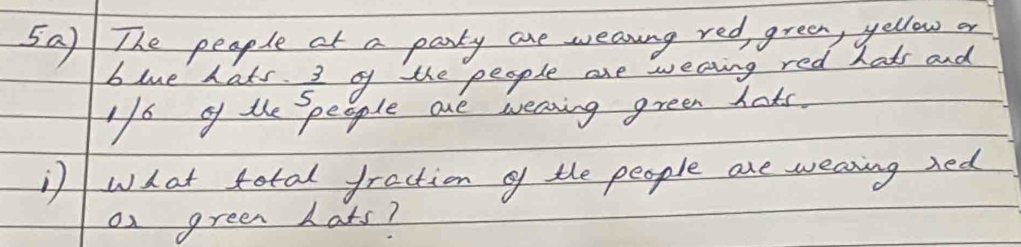 5a) The people at a party are wearing red, green, yellow or
blue hats. 3 of the people are wearing red hats and
1/6 of the 5 people are wearing green hats.
i) What total fraction of the people are wearing red
or green hats?